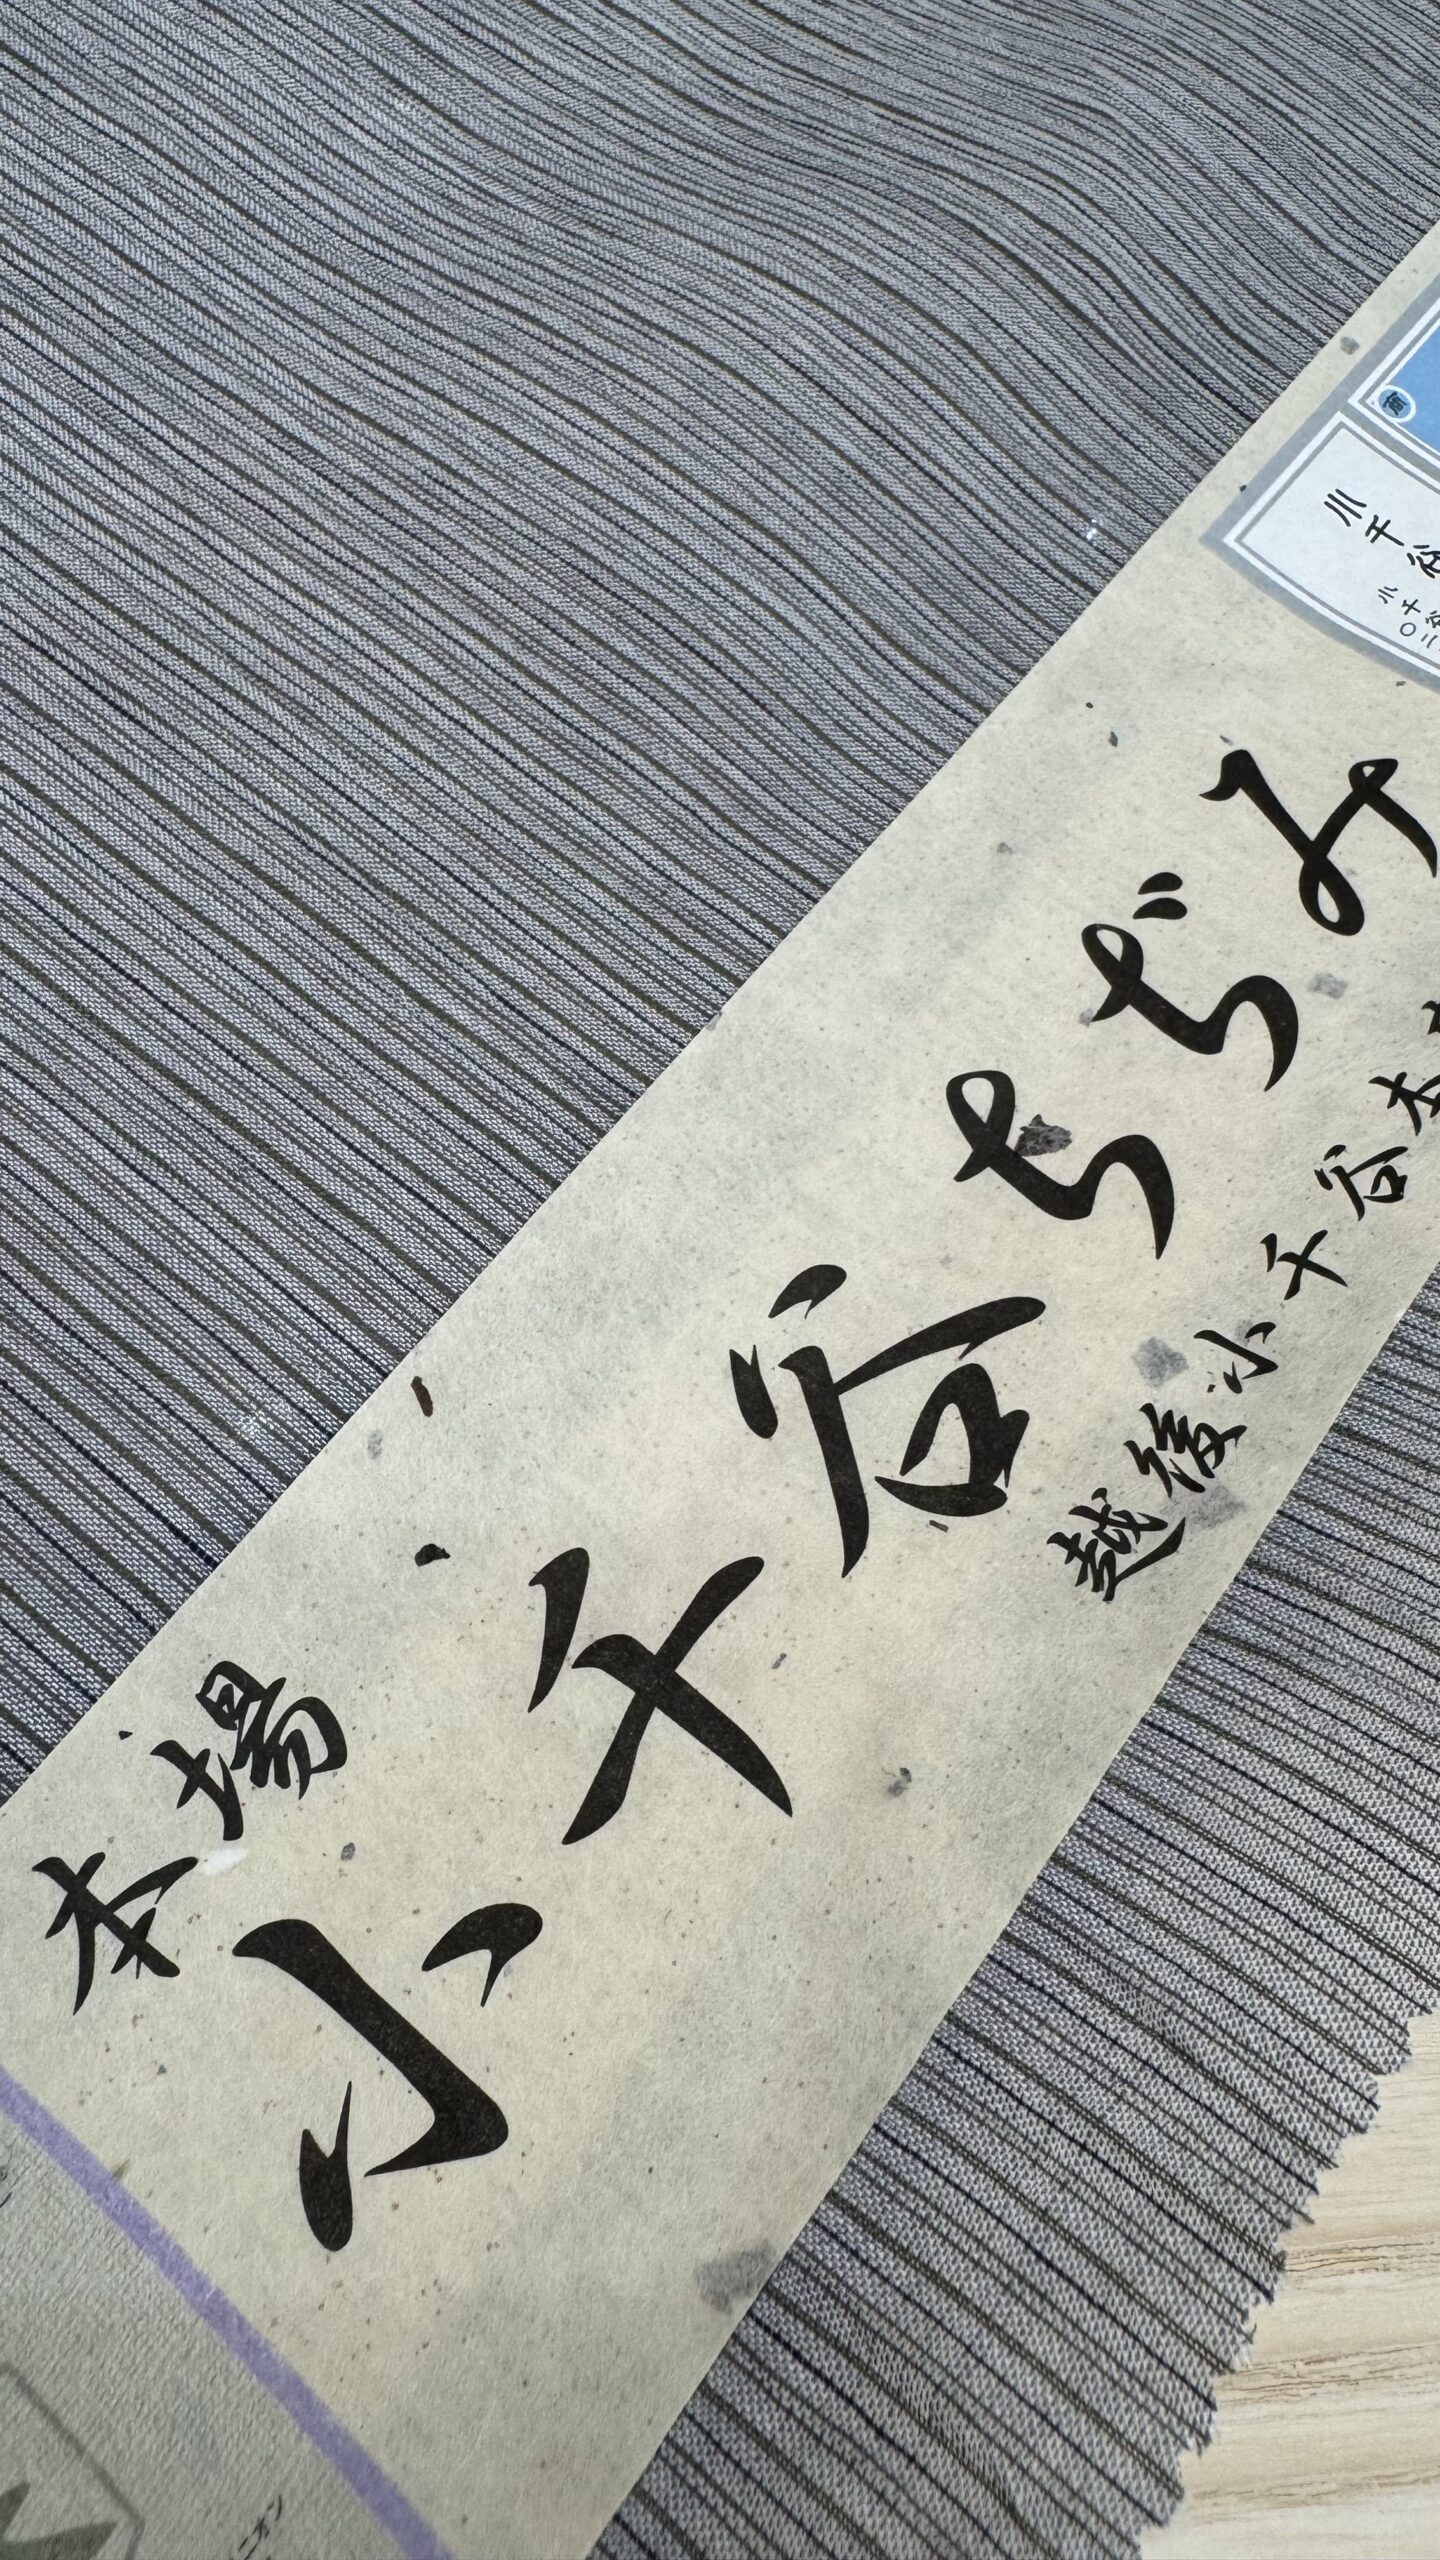 本場
小千谷ちぢみ
越後小千谷本
小千谷
小千谷
〇二